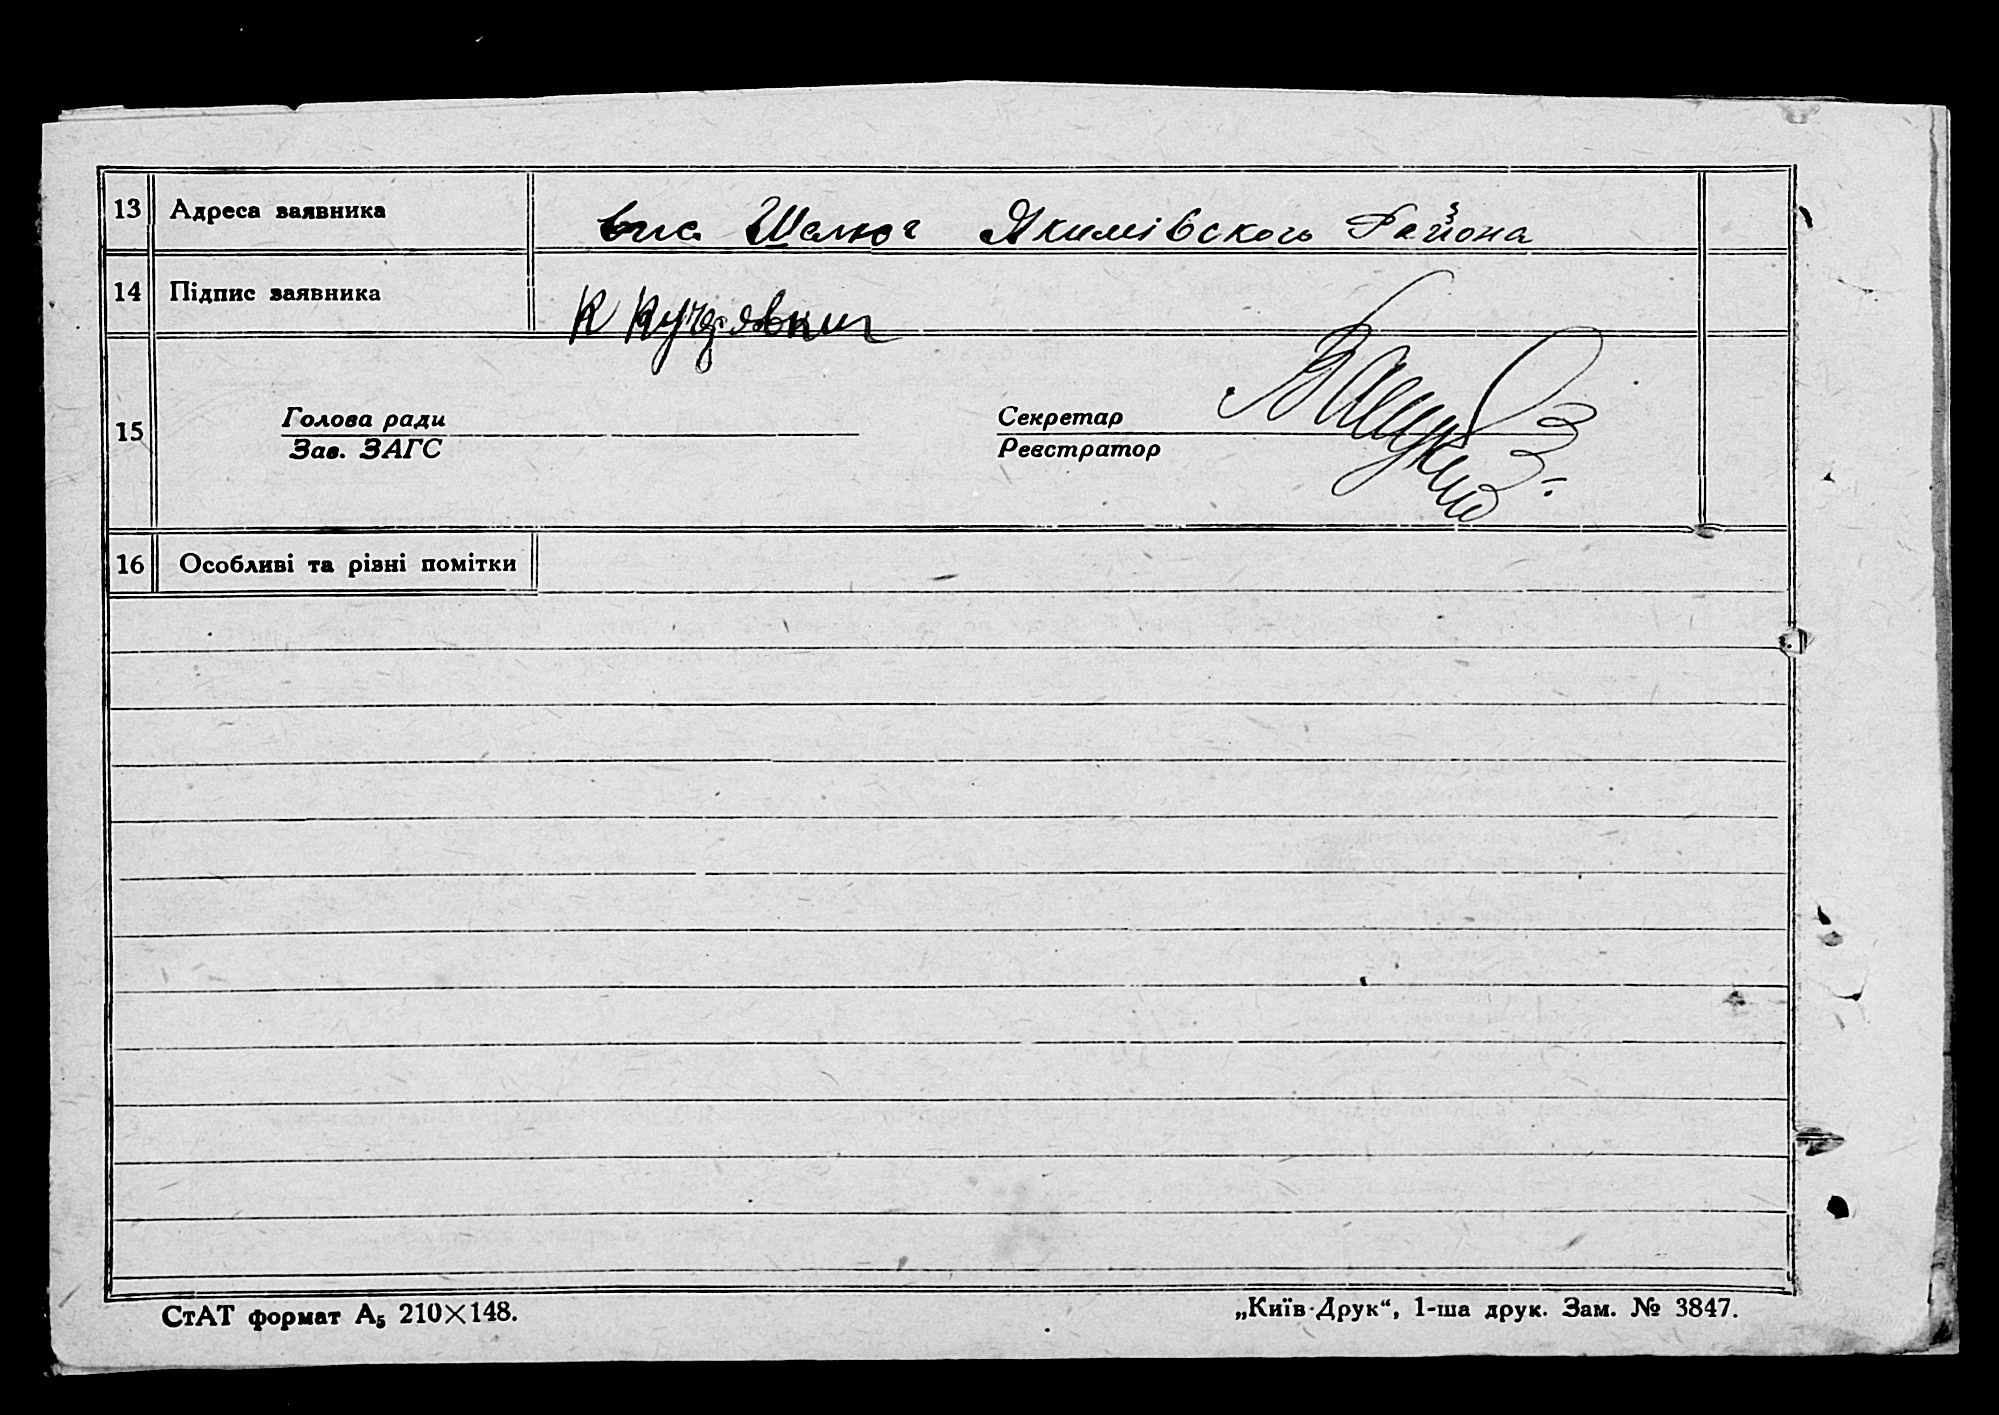 13 Адреса заявника вис. Шелюг Якимівского Района
14 Підпис заявника К Кучерявкин
15 Голова ради Секретар
Зав. ЗАГС Реєстратор
16 Особливі та різні помітки
СтАТ формат А₅ 210×148. „Київ-Друк“, 1-ша друк. Зам. № 3847.